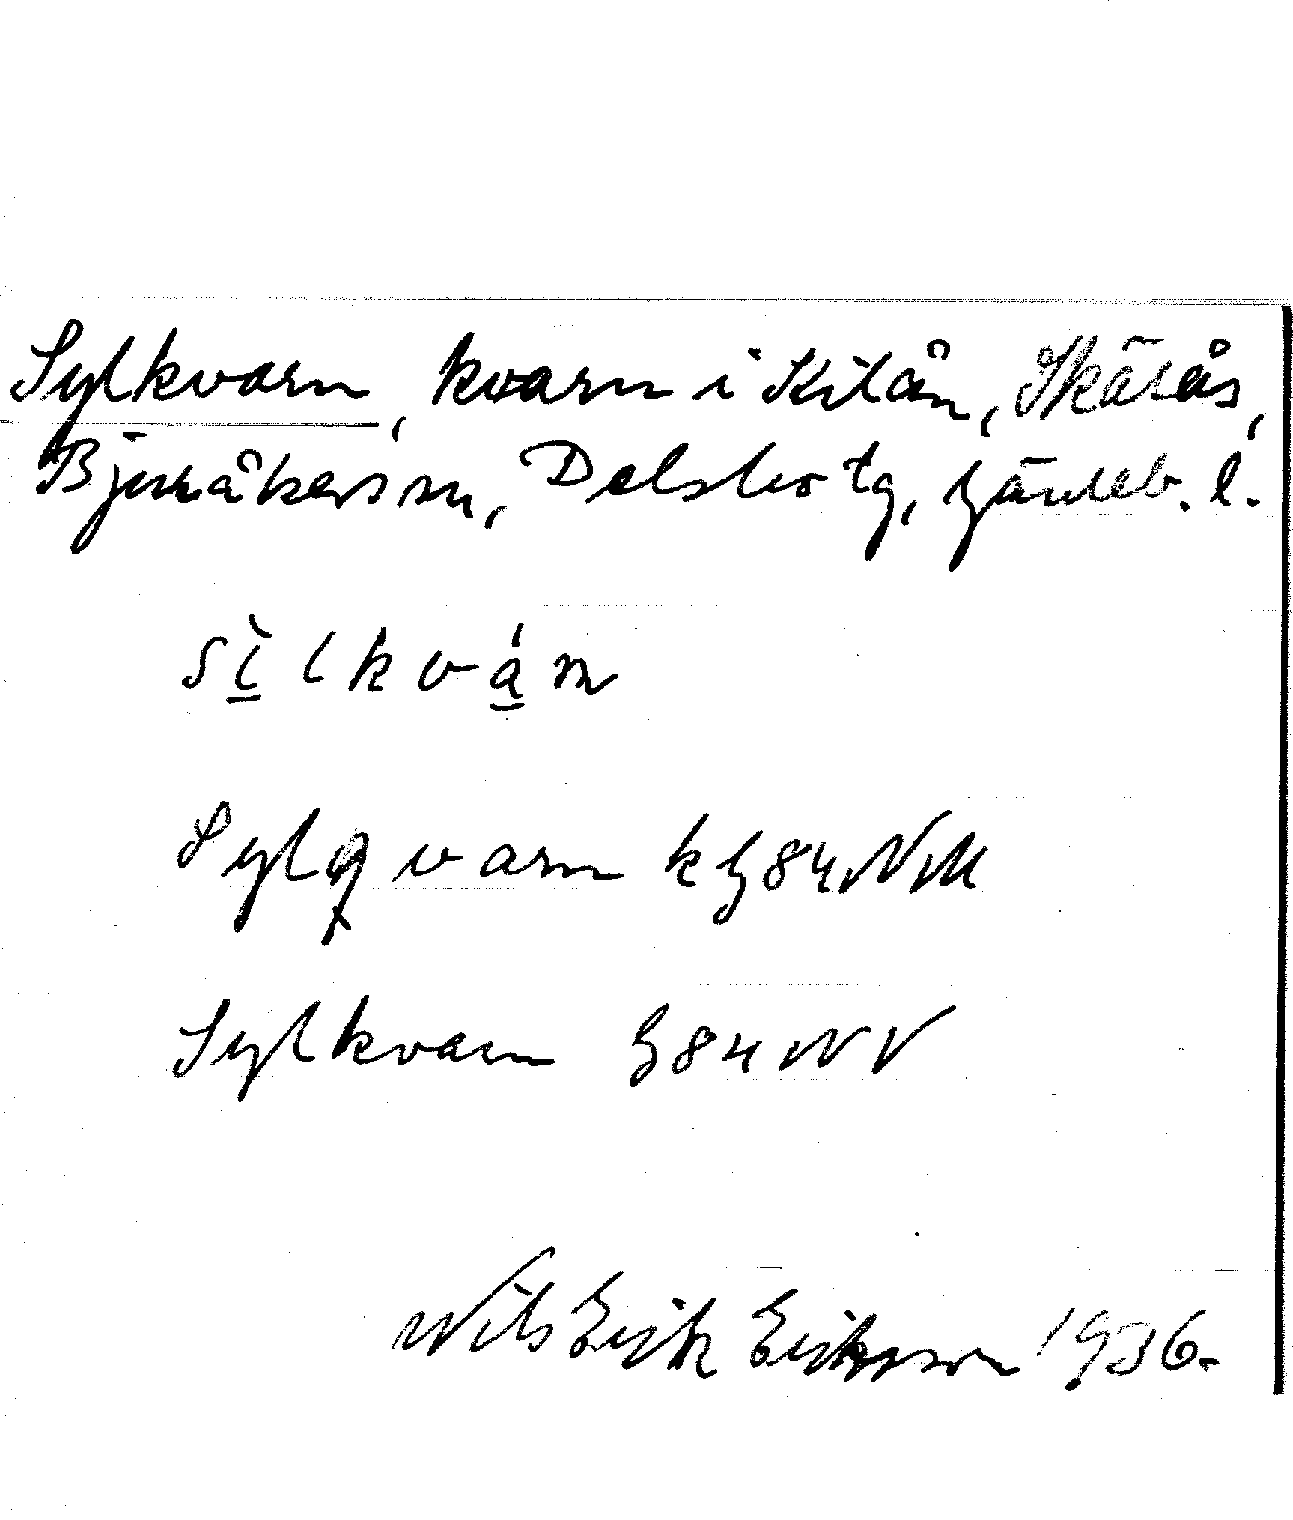 Sylkvarn, kvarn i Kitån, Skätås,
Bjuråkers sn, Delsbo tg, Gävleb. l.
sìlkván
Sylqvarn k G84NM
Sylkvarn G84NV
Nils Erik Eriksson 1936.